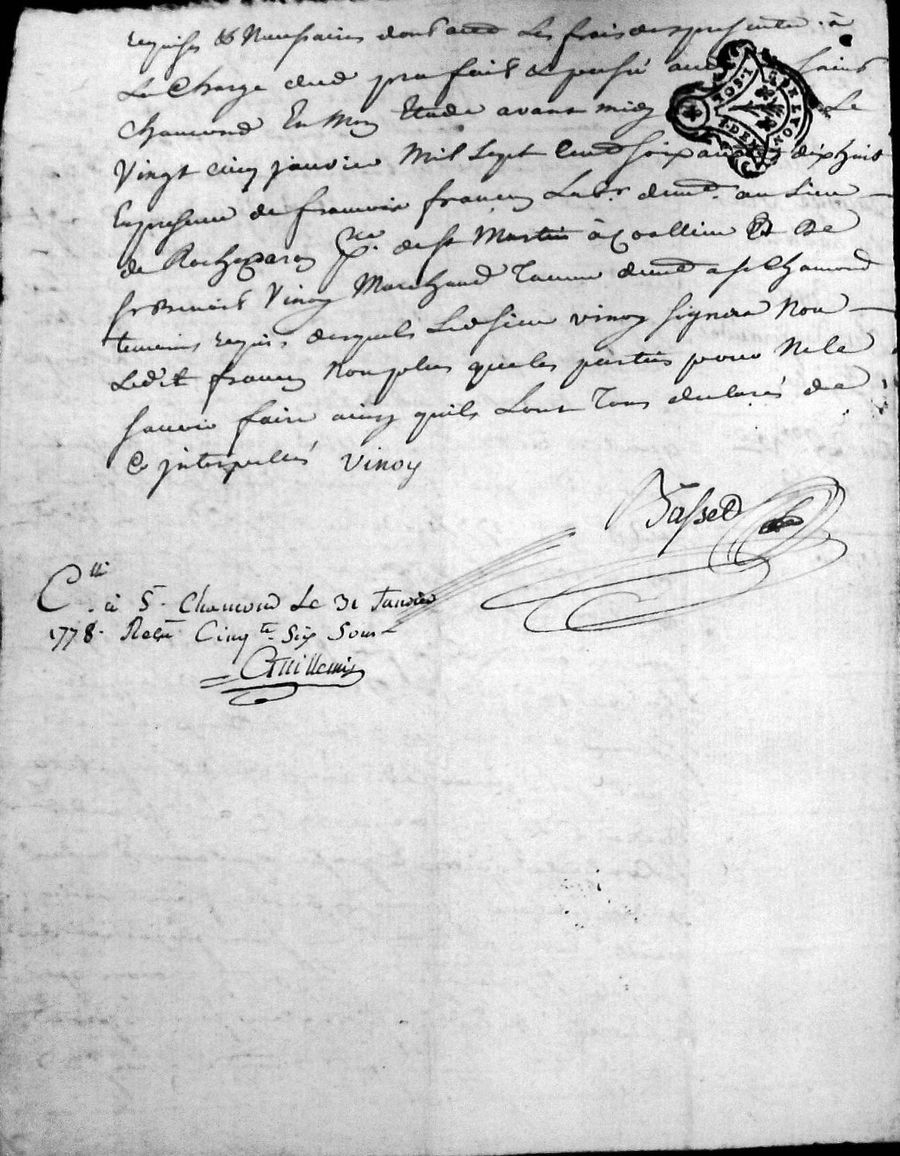 requises & Necessaires dont acte Les frais des presentes à
La Charge dud fait & passé aud Saint
Chamond En Mon Etude avant midy Le
Vingt cinq janvier Mil Sept Cent soixante dixhuit
En presence de françois françon Lab.r demt. au Lieu
de psse. de st Martin à Coallieu Et De
sr Benoit Vinoy Marchand demt a st Chamond
temoins requis desquels Ledit sieur vinoy signera Non
Ledit françon Non plus que les parties pour Ne le
savoir faire ainsy quils Sont Tous declarés de
Ce jnterpellés Vinoy
Basset
SOL
DEN
LYON
C.lli à St. Chamond Le 31 Janvier
1778. Recu Cinq.te Six Sous
Guillemin